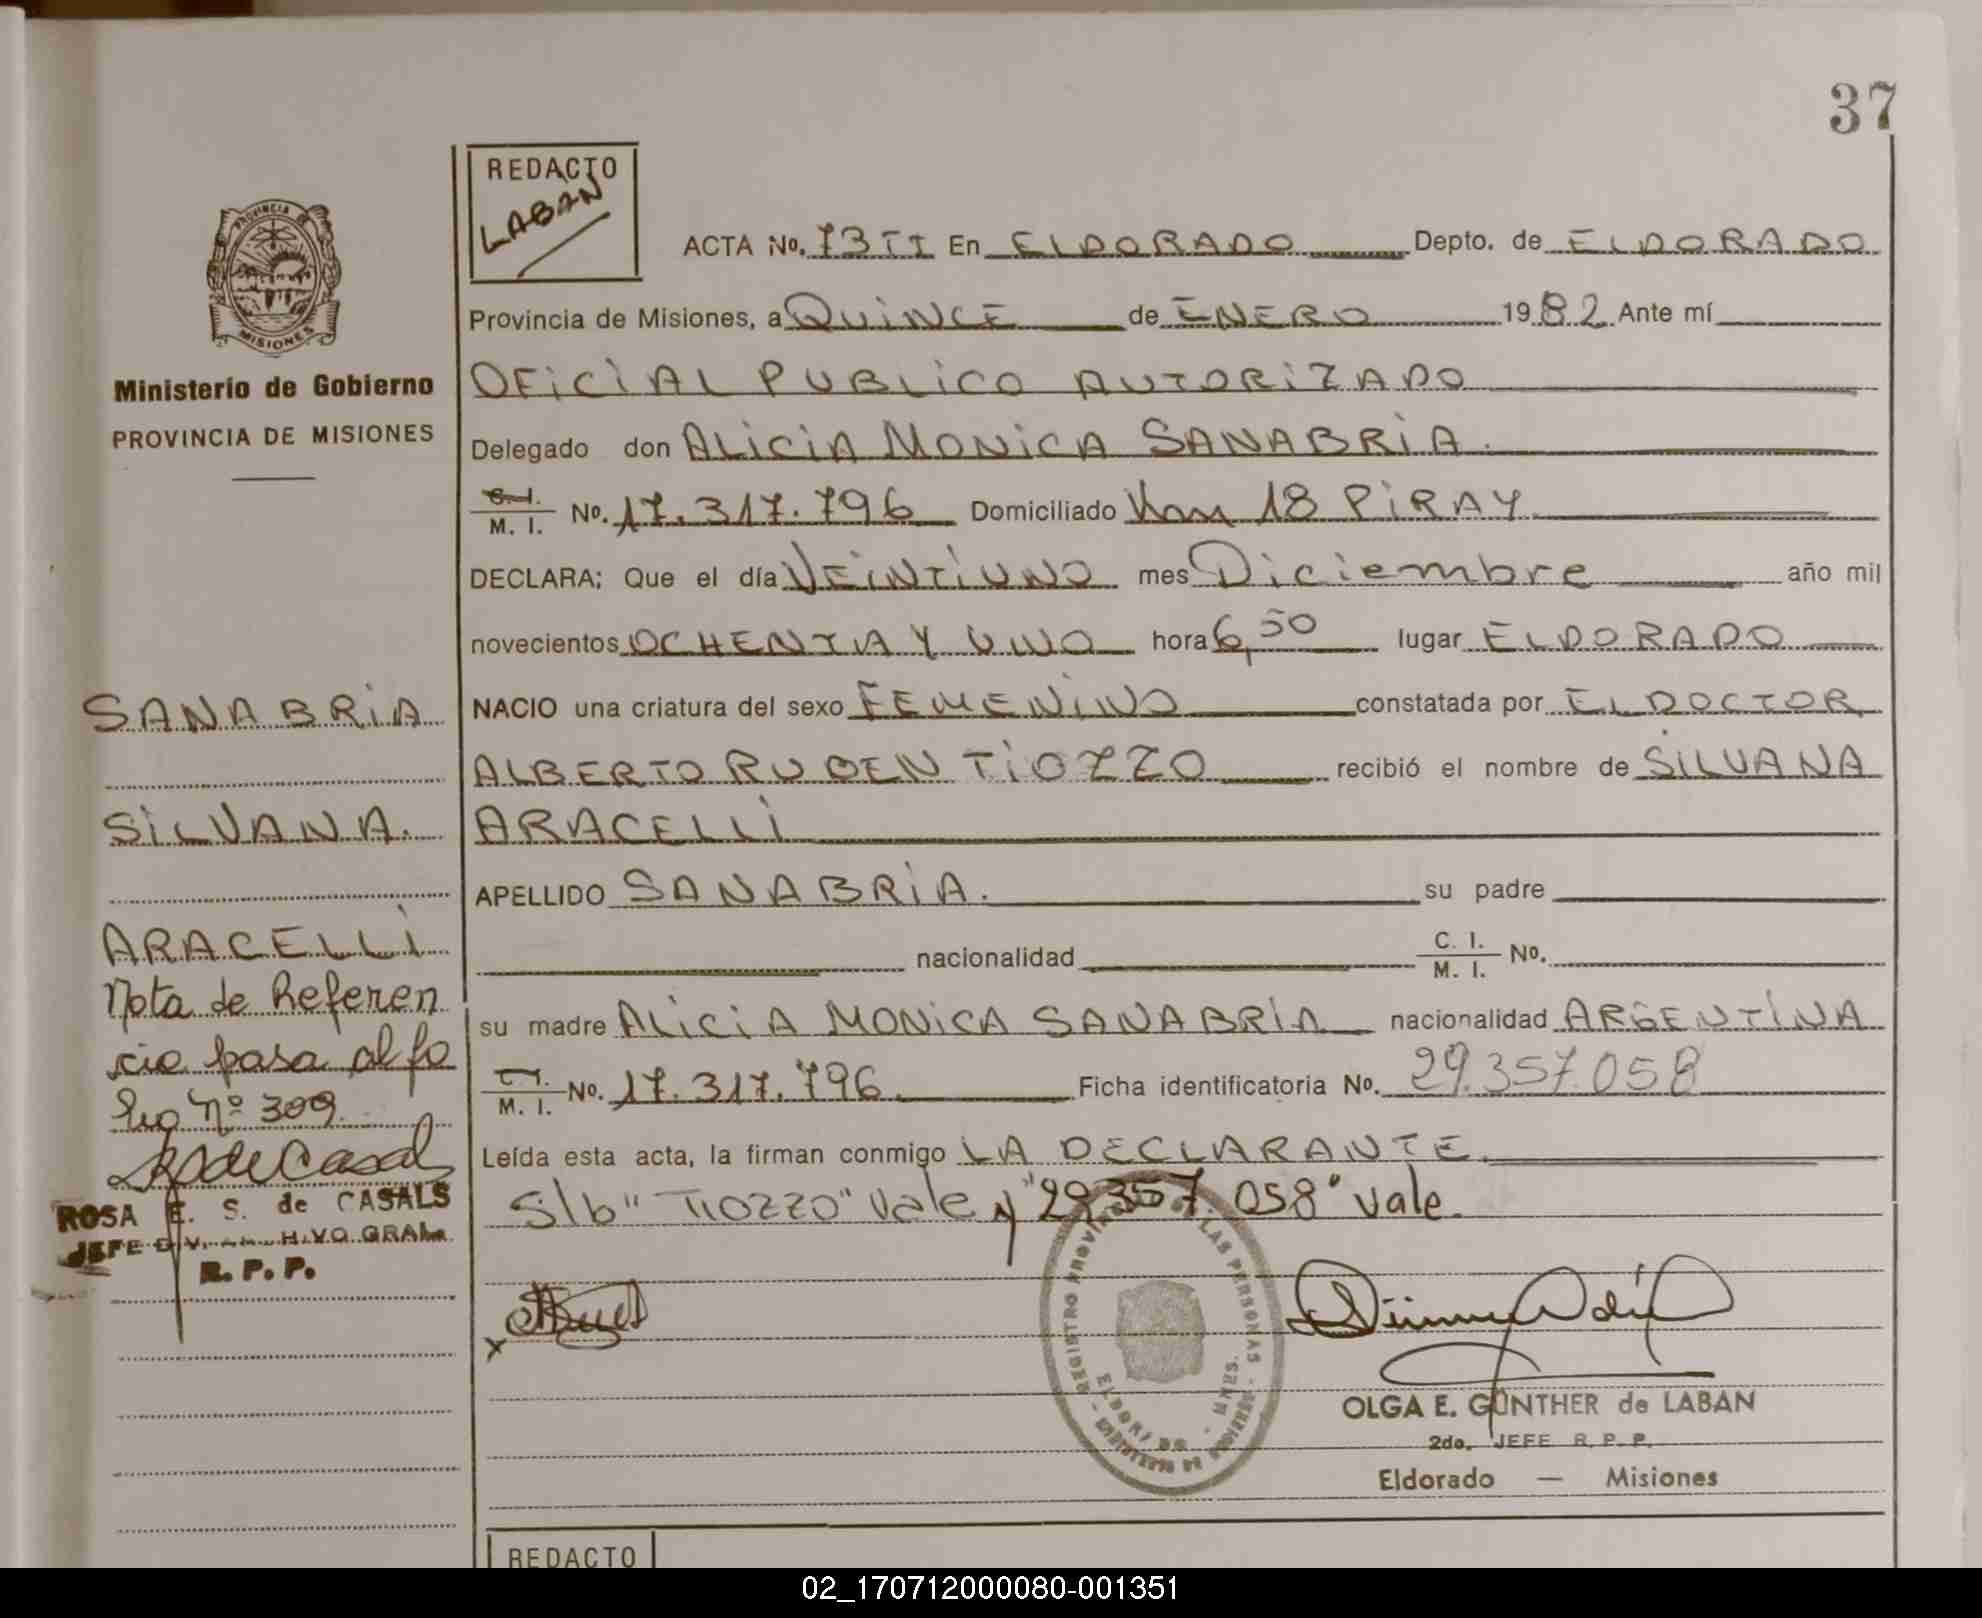 37
REDACTO
LABAN
ACTA No. 73 TI En ELDORADO Depto. de ELDORADO
Provincia de Misiones, a QUINCE de ENERO 1982 Ante mí
OFICIAL PUBLICO AUTORIZADO
Delegado don ALICIA MONICA SANABRIA.
C. I. / M. I. No. 17.317.796 Domiciliado Km 18 PIRAY
DECLARA: Que el día VEINTIUNO mes Diciembre año mil
novecientos OCHENTA Y UNO hora 6,50 lugar ELDORADO
NACIO una criatura del sexo FEMENINO constatada por EL DOCTOR
ALBERTO RUBEN TIOZZO recibió el nombre de SILVANA
ARACELLI
APELLIDO SANABRIA. su padre
nacionalidad C. I. / M. I. No.
su madre ALICIA MONICA SANABRIA nacionalidad ARGENTINA
C. I. / M. I. No. 17.317.796 Ficha identificatoria No. 29.357.058
Leída esta acta, la firman conmigo LA DECLARANTE.
S/b "TIOZZO" Vale y "29357.058" vale.
PROVINCIA DE
MISIONES
Ministerio de Gobierno
PROVINCIA DE MISIONES
SANABRIA
SILVANA.
ARACELLI
Nota de Referen
cia pasa al fo
lio Nº 309
ROSA E. S. de CASALS
JEFE DIV. GRAL.
R. P. P.
REGISTRO PROVINCIAL DE LAS PERSONAS
ELDORADO - MNES.
OLGA E. GÜNTHER de LABAN
2do. JEFE R. P. P.
Eldorado — Misiones
REDACTO
02_170712000080-001351